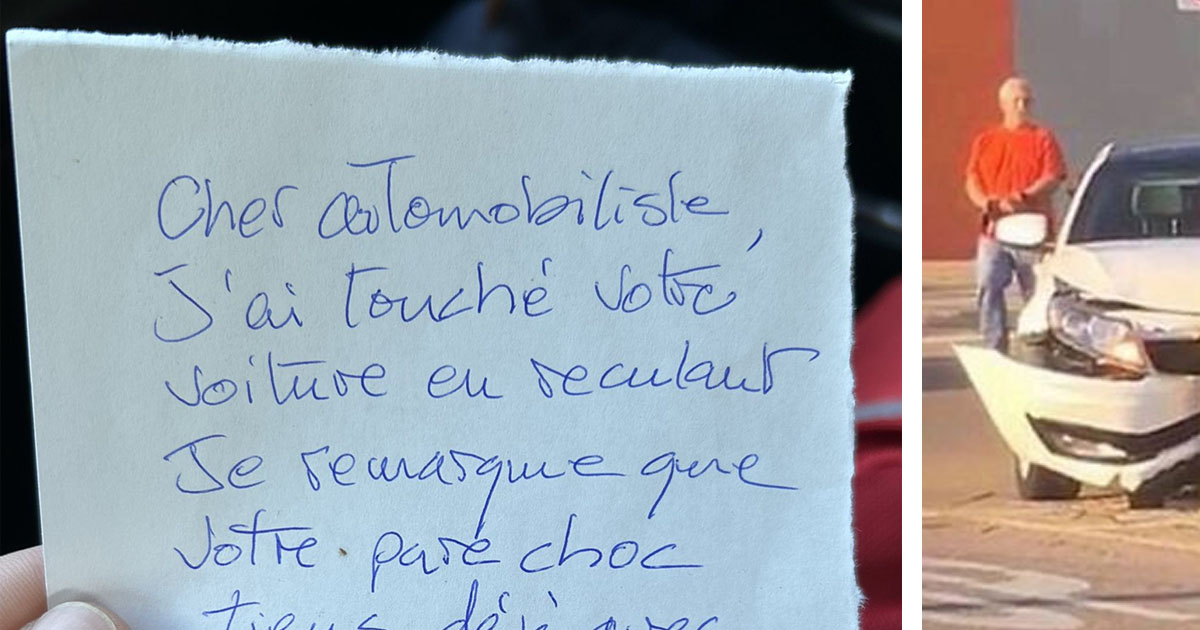 Cher automobiliste,
J'ai touché votre
voiture en reculant
Je remarque que
votre pare choc
tiens déjà avec